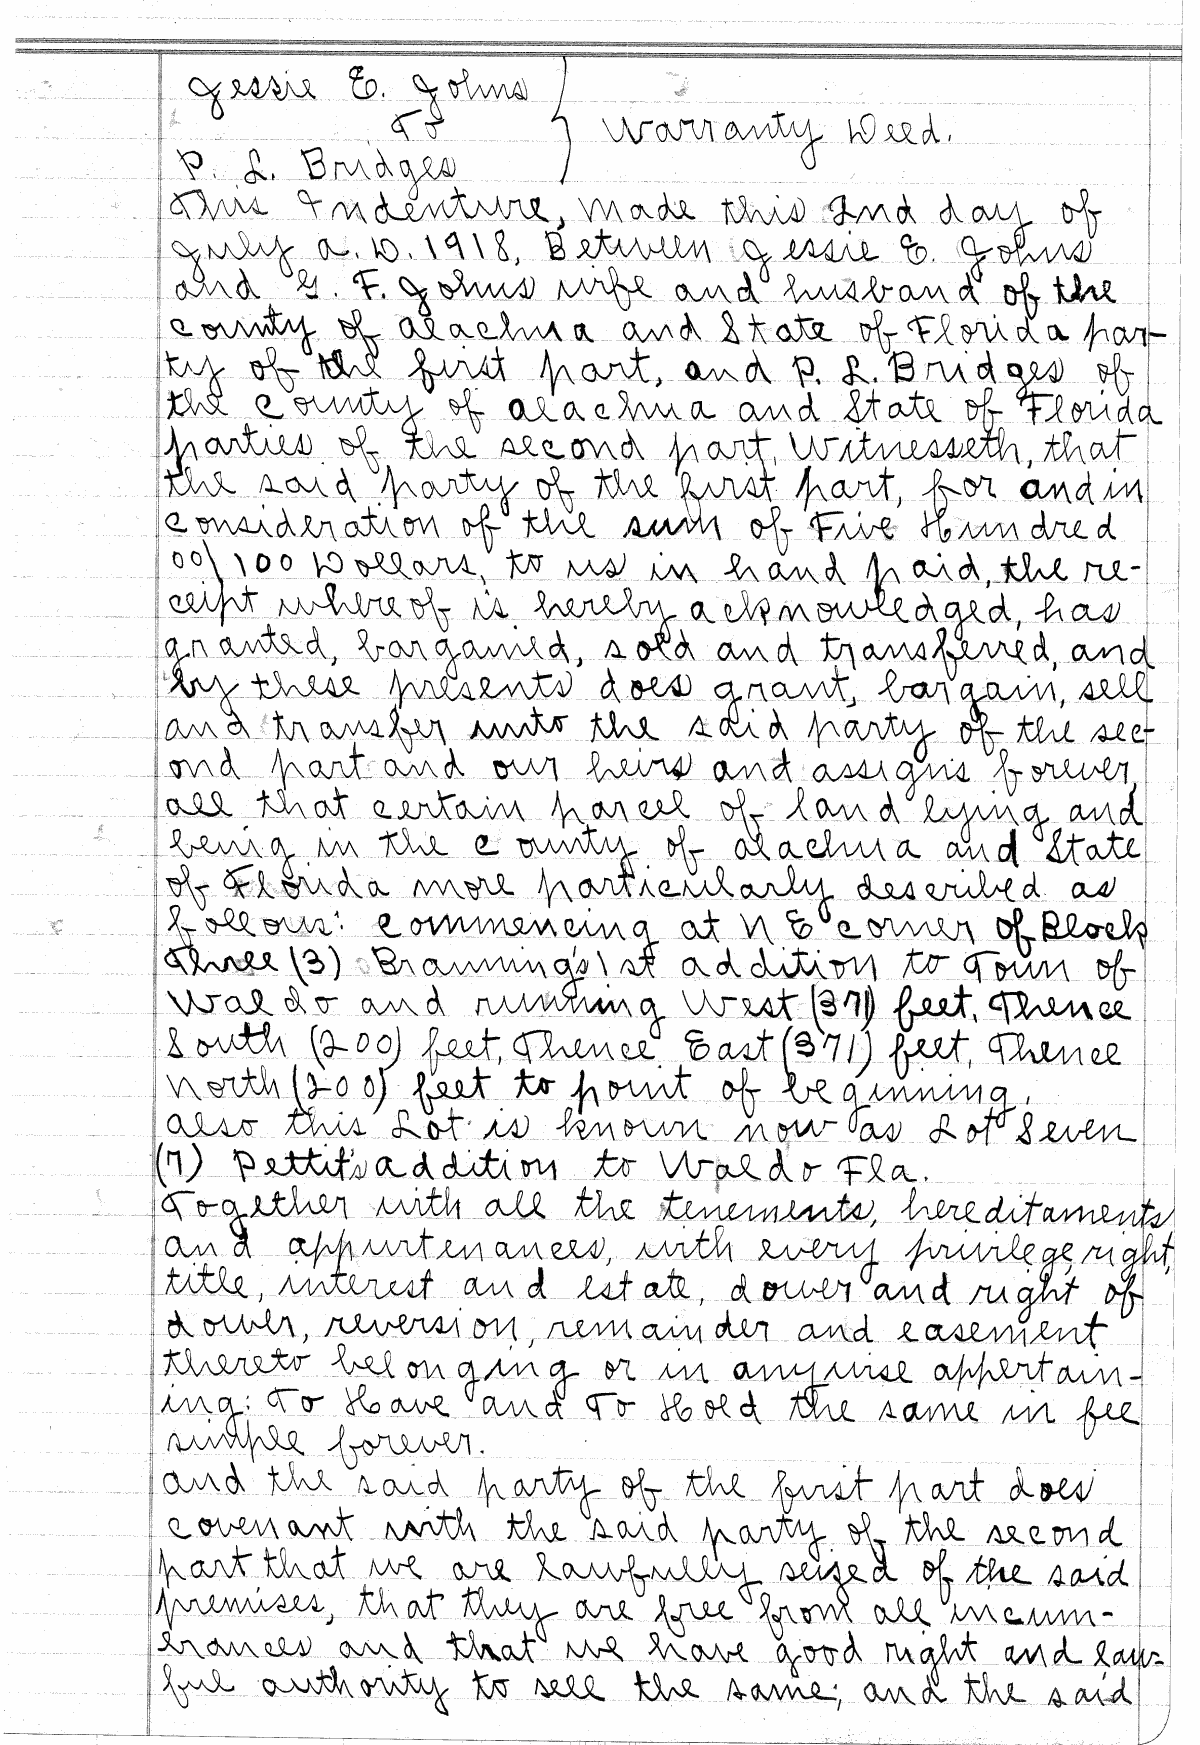 Jessie E. Johns
To
Warranty Deed.
P. L. Bridges
This Indenture, made this 2nd day of
July A. D. 1918, Between Jessie E. Johns
and G. F. Johns wife and husband of the
County of Alachua and State of Florida par-
ty of the first part, and P. L. Bridges of
the County of Alachua and State of Florida
parties of the second part, Witnesseth, that
the said party of the first part, for and in
consideration of the sum of Five Hundred
00/100 Dollars, to us in hand paid, the re-
ceipt whereof is hereby acknowledged, has
granted, bargained, sold and transferred, and
by these presents does grant, bargain, sell
and transfer unto the said party of the sec-
ond part and our heirs and assigns forever,
all that certain parcel of land lying and
being in the County of Alachua and State
of Florida more particularly described as
follows: Commencing at N E corner of Block
Three (3) Branning's 1st addition to Town of
Waldo and running West (371) feet, Thence
South (200) feet, Thence East (371) feet, Thence
North (200) feet to point of beginning.
Also this Lot is known now as Lot Seven
(7) Pettit's addition to Waldo Fla.
Together with all the tenements, hereditaments
and appurtenances, with every privilege, right,
title, interest and estate, dower and right of
dower, reversion, remainder and easement
thereto belonging or in anywise appertain-
ing: To Have and To Hold the same in fee
simple forever.
And the said party of the first part does
covenant with the said party of the second
part that we are lawfully seized of the said
premises, that they are free from all incum-
brances and that we have good right and law-
ful authority to sell the same; and the said